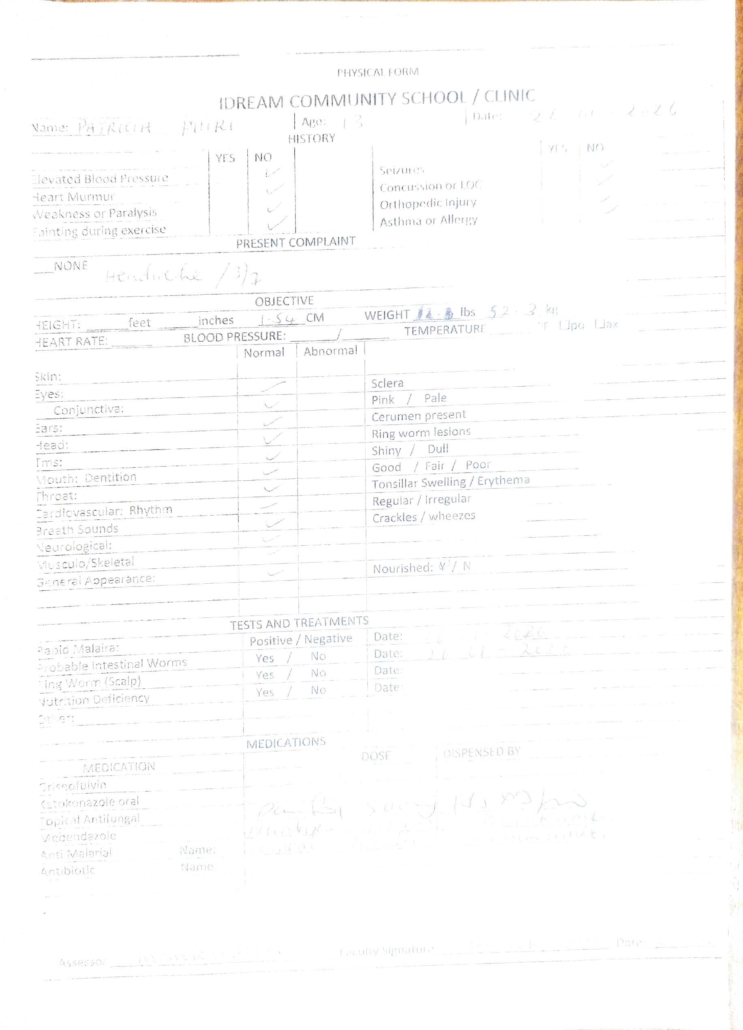 PHYSICAL FORM
IDREAM COMMUNITY SCHOOL / CLINIC
Name: PATRICIA PHIRI Age: 13 Date: 2026
HISTORY
YES NO YES NO
Elevated Blood Pressure Seizures
Heart Murmur Concussion or LOC
Weakness or Paralysis Orthopedic Injury
Fainting during exercise Asthma or Allergy
PRESENT COMPLAINT
NONE
Headache
OBJECTIVE
HEIGHT: feet inches 1.54 CM WEIGHT lbs 52.3
HEART RATE: BLOOD PRESSURE: / TEMPERATURE
Normal Abnormal
Skin:
Eyes: Sclera
Conjunctiva: Pink / Pale
Ears: Cerumen present
Head: Ring worm lesions
Tms: Shiny / Dull
Mouth: Dentition Good / Fair / Poor
Throat: Tonsillar Swelling / Erythema
Cardiovascular: Rhythm Regular / Irregular
Breath Sounds Crackles / wheezes
Neurological:
Musculo/Skeletal
General Appearance: Nourished: Y / N
TESTS AND TREATMENTS
Rapid Malaira: Positive / Negative Date: 2026
Probable Intestinal Worms Yes / No Date:
Ring Worm (Scalp) Yes / No Date:
Nutrition Deficiency Yes / No Date:
Other:
MEDICATIONS
MEDICATION DOSE DISPENSED BY
Griseofulvin
Ketokonazole oral
Topical Antifungal
Mebendazole
Anti Malarial Name:
Antibiotic Name
Assessor Faculty Signature Date: